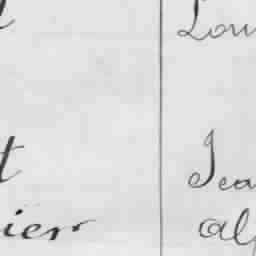 Lou
t
Jea
ier
Alp